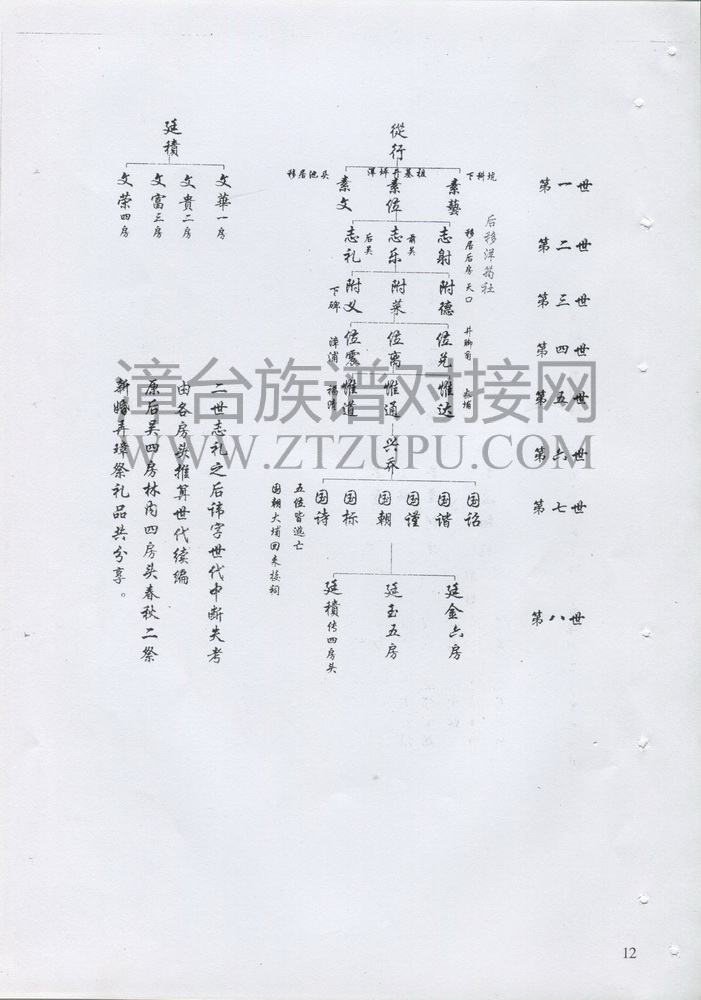 從行
素藝
下科坑
素位
洋坪开基祖
素文
移居池头
第一世
志射
移居后房
后移洋筠社
志乐
前吴
志礼
后吴
第二世
附德
天口
附菜
附义
下碑
第三世
位兑
井脚角
位离
位震
漳浦
第四世
惟达
大埔
惟通
惟道
第五世
兴乔
第六世
国诏
国谐
国谨
国朝
国标
国诗
五位皆逃亡
国朝大埔回来接祠
第七世
廷金六房
廷玉五房
廷積传四房头
第八世
廷積
文華一房
文貴二房
文富三房
文荣四房
二世志礼之后讳字世代中断失考
由各房头推算世代续编
原后吴四房林内四房头春秋二祭
新婚弄璋祭礼品共分享。
漳台族谱对接网
WWW.ZTZUPU.COM
12